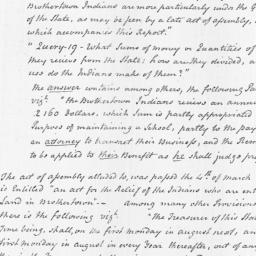 Brothertown Indians are more particularly under the G
of the State, as may be seen by a late act of assembly,
which accompanies this Report."
"Query-19- What Sums of money or Quantities of
they recieve from the State: how are they divided, a
uses do the Indians make of them?"
The answer contains among others, the following Sa
viz.t "The Brothertown Indians recieve an annu
2160 Dollars. which Sum is partly appropriated
Purpose of maintaining a School, partly to the pay
an attorney to transact their Business, and the Rem
to be applied to their Benefit as he shall judge pr
The act of assembly alluded to, was passed the 4th. of march
is Entitled "an act for the Relief of the Indians who are ent
Land in Brothertown"-- Among many other Provisions
there is the following viz.t "The Treasurer of this Stat
Time being, Shall, on the first monday in august next, an
first monday in august in every Year thereafter, out of an